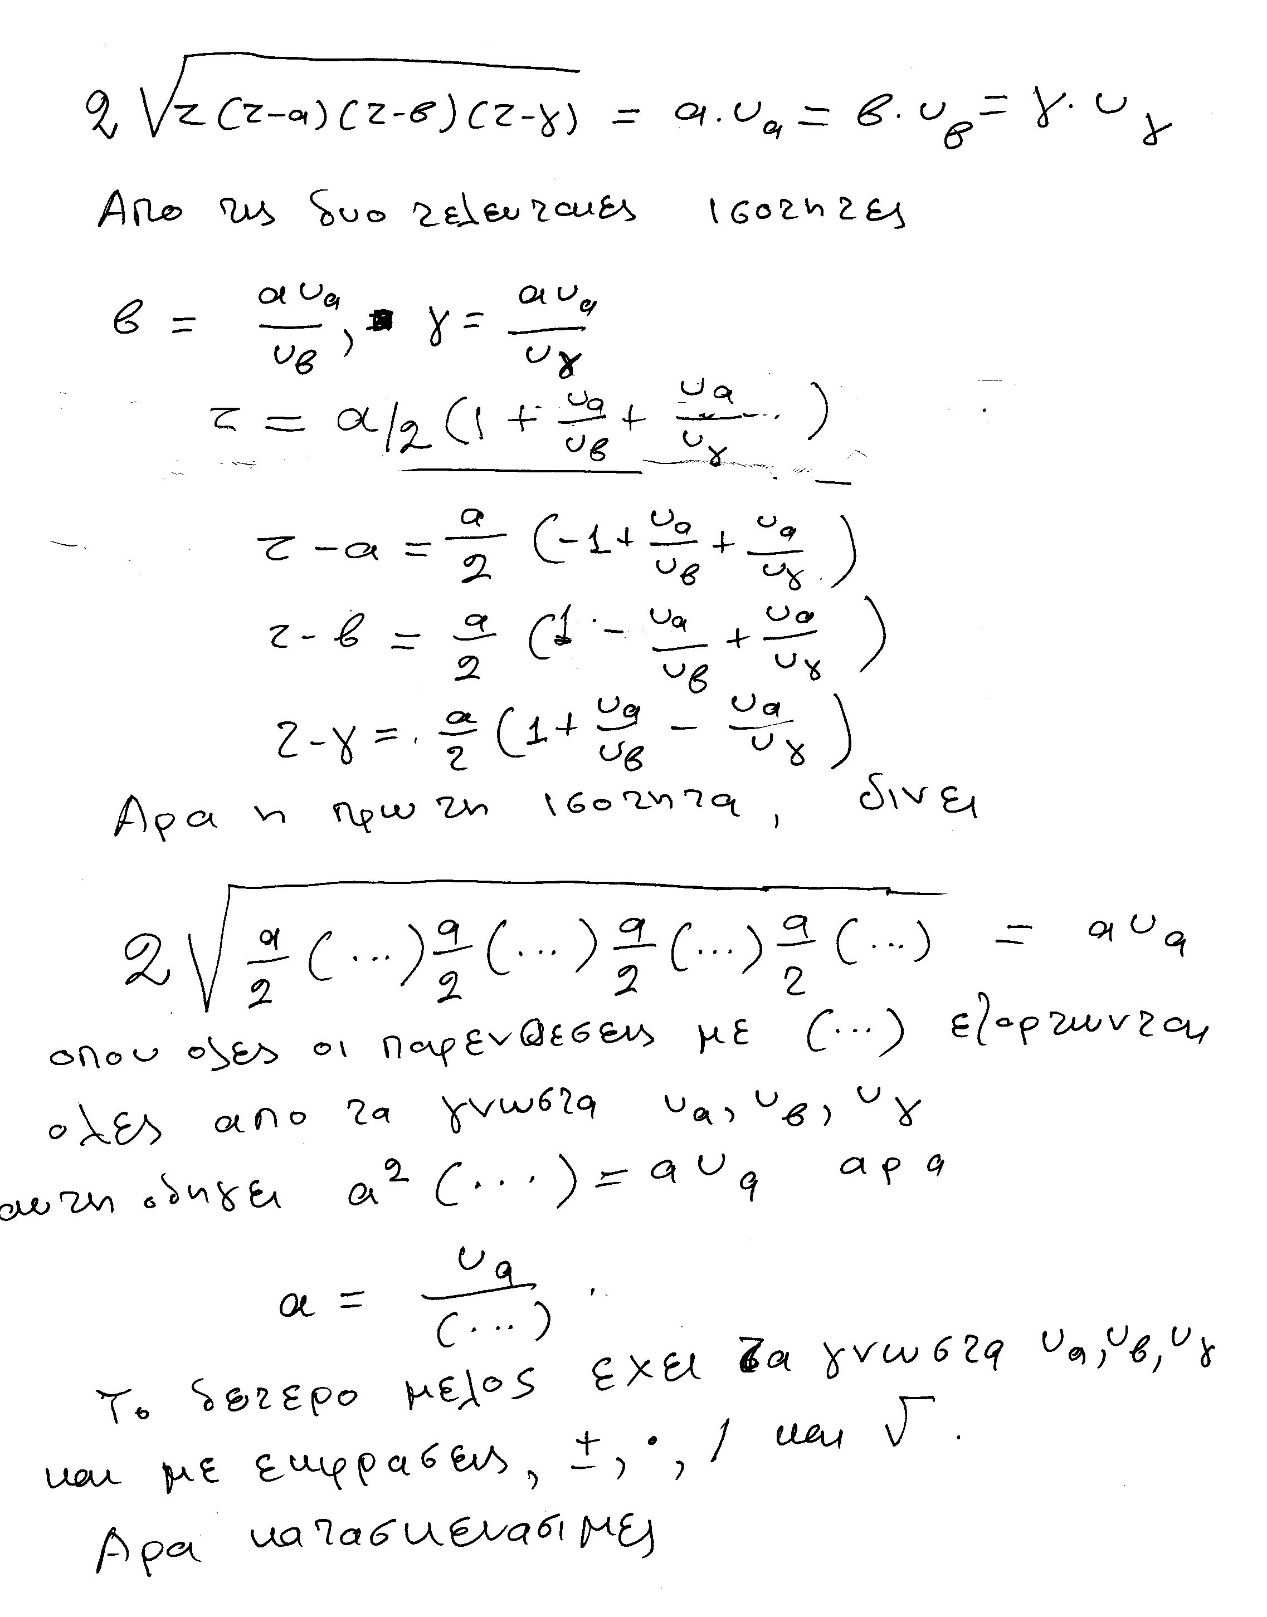 2√τ(τ-α)(τ-β)(τ-γ) = α.υ_α = β.υ_β = γ.υ_γ
Απο τις δυο τελευταιες ισοτητες
β = αυ_α/υ_β, γ = αυ_α/υ_γ
τ = α/2 (1 + υ_α/υ_β + υ_α/υ_γ)
τ-α = α/2 (-1 + υ_α/υ_β + υ_α/υ_γ)
τ-β = α/2 (1 - υ_α/υ_β + υ_α/υ_γ)
τ-γ = α/2 (1 + υ_α/υ_β - υ_α/υ_γ)
Αρα η πρωτη ισοτητα, δινει
2√α/2 (...) α/2 (...) α/2 (...) α/2 (...) = αυ_α
οπου ολες οι παρενθεσεις με (...) εξαρτωνται
ολες απο τα γνωστα υ_α, υ_β, υ_γ
αυτη οδηγει α² (...) = αυ_α αρα
α = υ_α/(...).
Το δετερο μελος εχει τα γνωστα υ_α, υ_β, υ_γ
και με εκφρασεις, ±, ·, / και √.
Αρα κατασκευασιμες